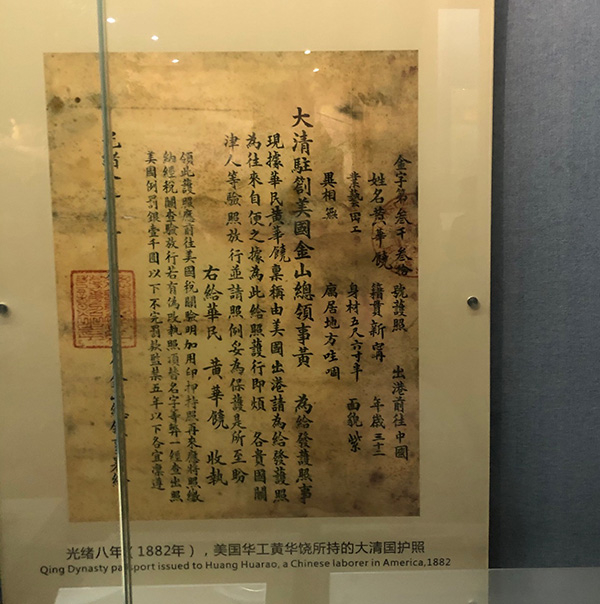 金字第叁千叁拾 號護照 出港前往中國
姓名黃華饒 籍貫新甯 年歲三十一
業藝田工 身材五尺六寸半 面貌紫
異相無 寓居地方
大清駐劄美國金山總領事黃 為給發護照事
現據華民黃華饒稟稱由美國出港請為給發護照
為往來自便之據為此給照護行即煩 各貴國關
津人等驗照放行並請照例妥為保護是所至盼
右給華民 黃華饒 收執
領此護照應前往美國稅關驗明加用印押持照再來應將照繳
納經稅關查驗放行若有偽改執照頂替名字等弊一經查出照
美國例罰銀壹千圓以下不完罰款監禁五年以下各宜凜遵
光緒
光绪八年(1882年)，美国华工黄华饶所持的大清国护照
Qing Dynasty passport issued to Huang Huarao, a Chinese laborer in America,1882